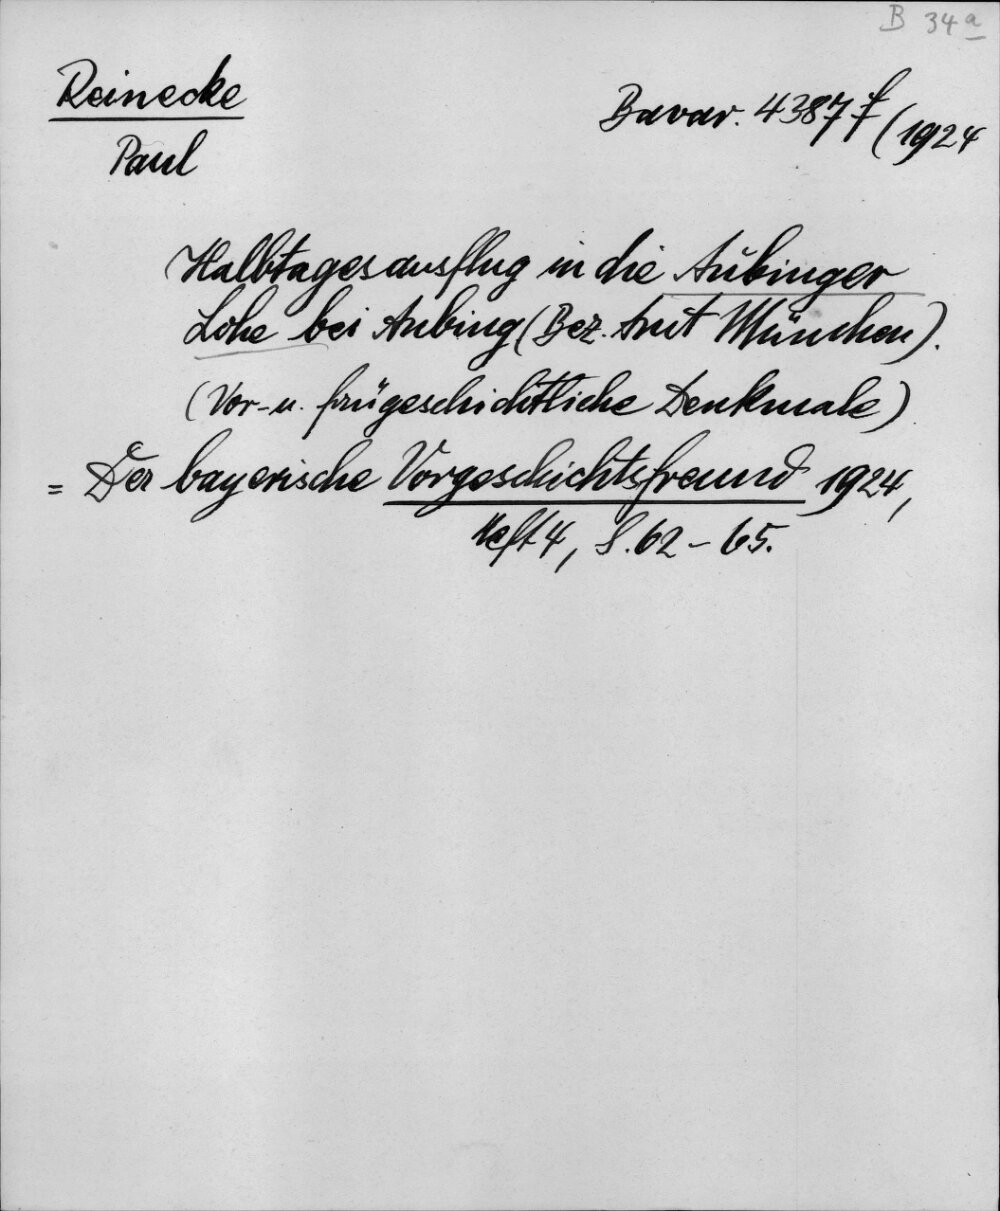 B 34a
Reinecke
Bavar. 4387 f (1924
Paul
Halbtagesausflug in die Aubinger
Lohe bei Aubing (Bez. Amt München).
(Vor- u. frügeschichtliche Denkmale)
= Der bayerische Vorgeschichtsfreund 1924,
Heft 4, S. 62-65.